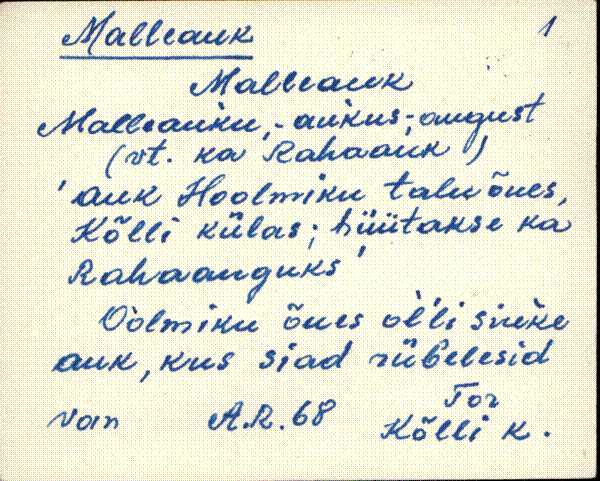 Malleauk 1
Malleauk
Malleauku, -aukus, -august
(vt. ka Rahaauk)
'auk Hoolmiku talu õues,
Kõlli külas; hüütakse ka
Rahaauguks'
Oolmiku õues ol'li siuke
auk, kus siad rübelesid
van A.R.68 Tor
Kõlli k.